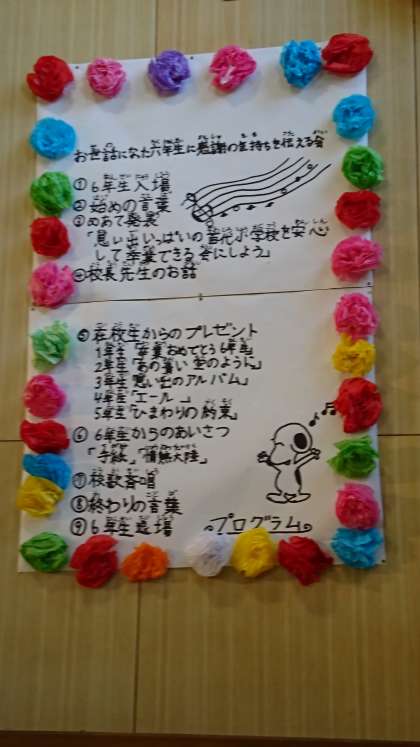 お世話になった六年生に感謝の気持ちを伝える会
①6年生入場
②始めの言葉
③めあて発表
「思い出いっぱいの 学校を安心
して卒業できる会にしよう」
④校長先生のお話
⑤在校生からのプレゼント
1年生「卒業おめでとう6年生」
2年生「あの青い空のように」
3年生「思い出のアルバム」
4年生「エール」
5年生「ひまわりの約束」
⑥6年生からのあいさつ
「手紙」「情熱大陸」
⑦校歌斉唱
⑧終わりの言葉
⑨6年生退場
プログラム